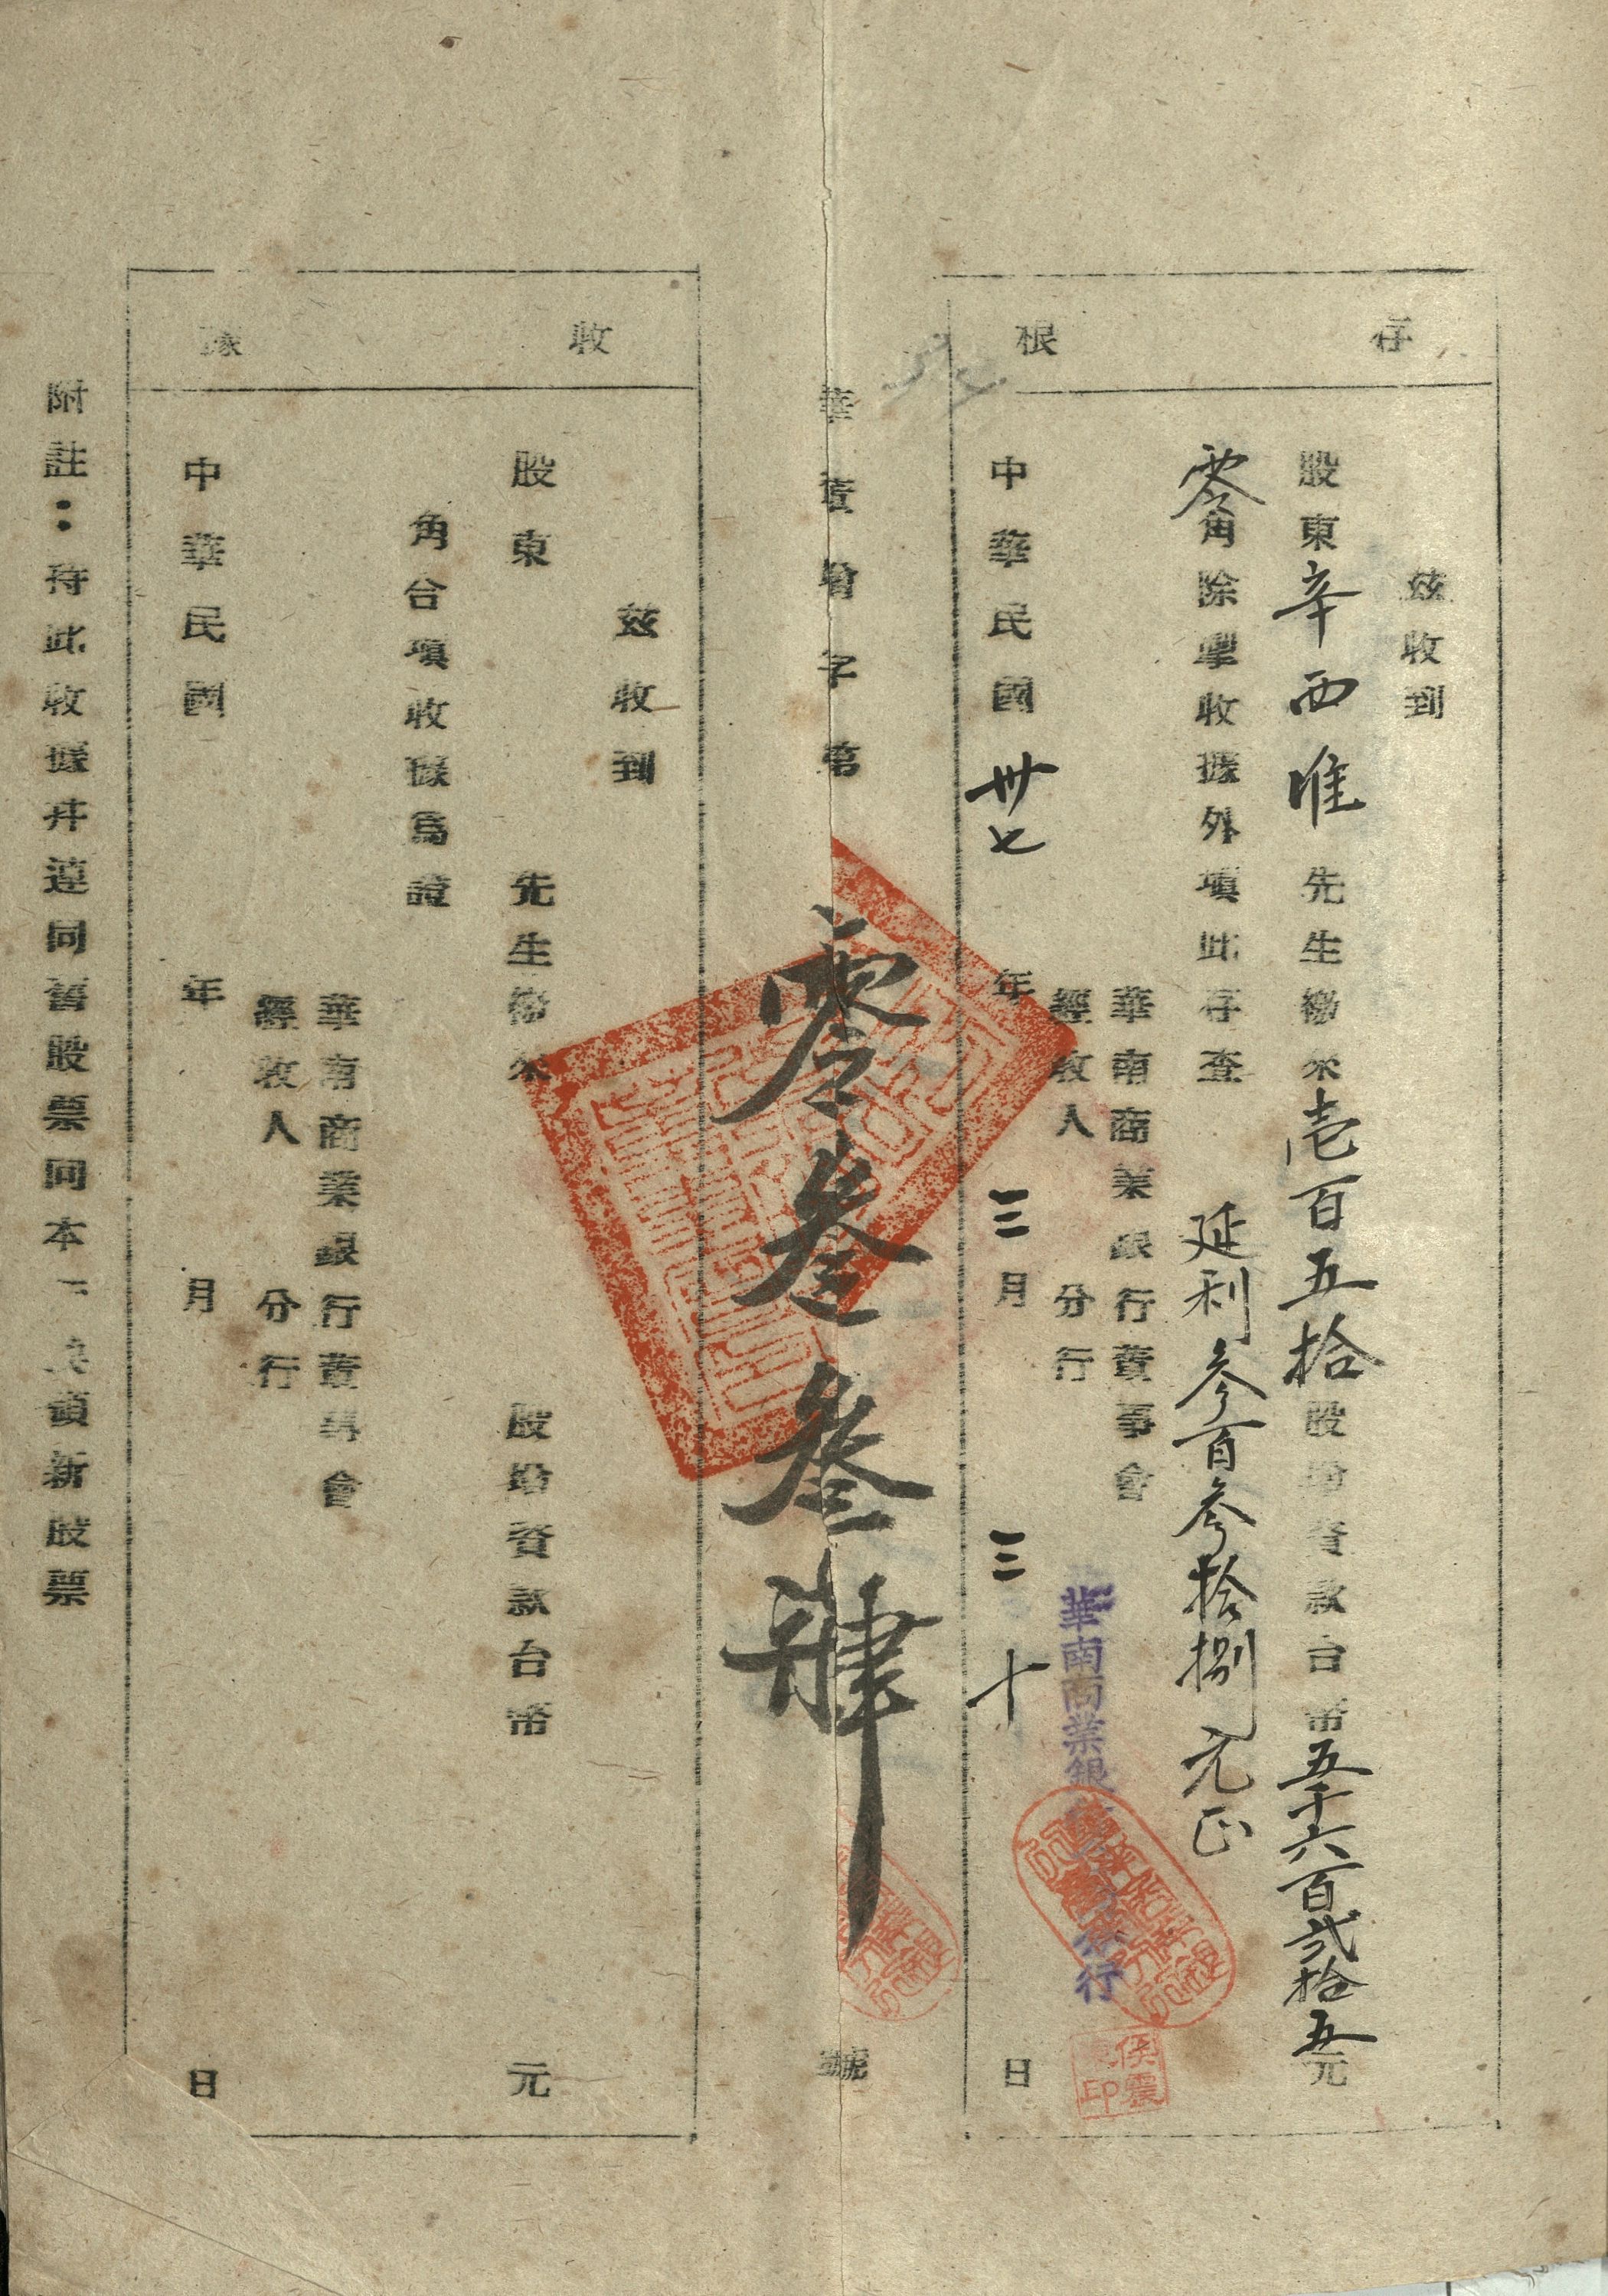 存根
茲收到
股東辛西淮先生繳來壹百五拾股增資款台幣五千六百貳拾五元
零角除掣收據外項此存查 延利參百參拾捌元正
華南商業銀行董事會
經收人 分行
華南商業銀行
行
侯震
印
中華民國卅七年三月三十日
華董增字第零叁叁肆號
收據
茲收到
股東 先生繳來 股增資款台幣 元
角合項收據為證
華南商業銀行董事會
經收人 分行
中華民國 年 月 日
附註：持此收據幷連同舊股票向本行 換領新股票